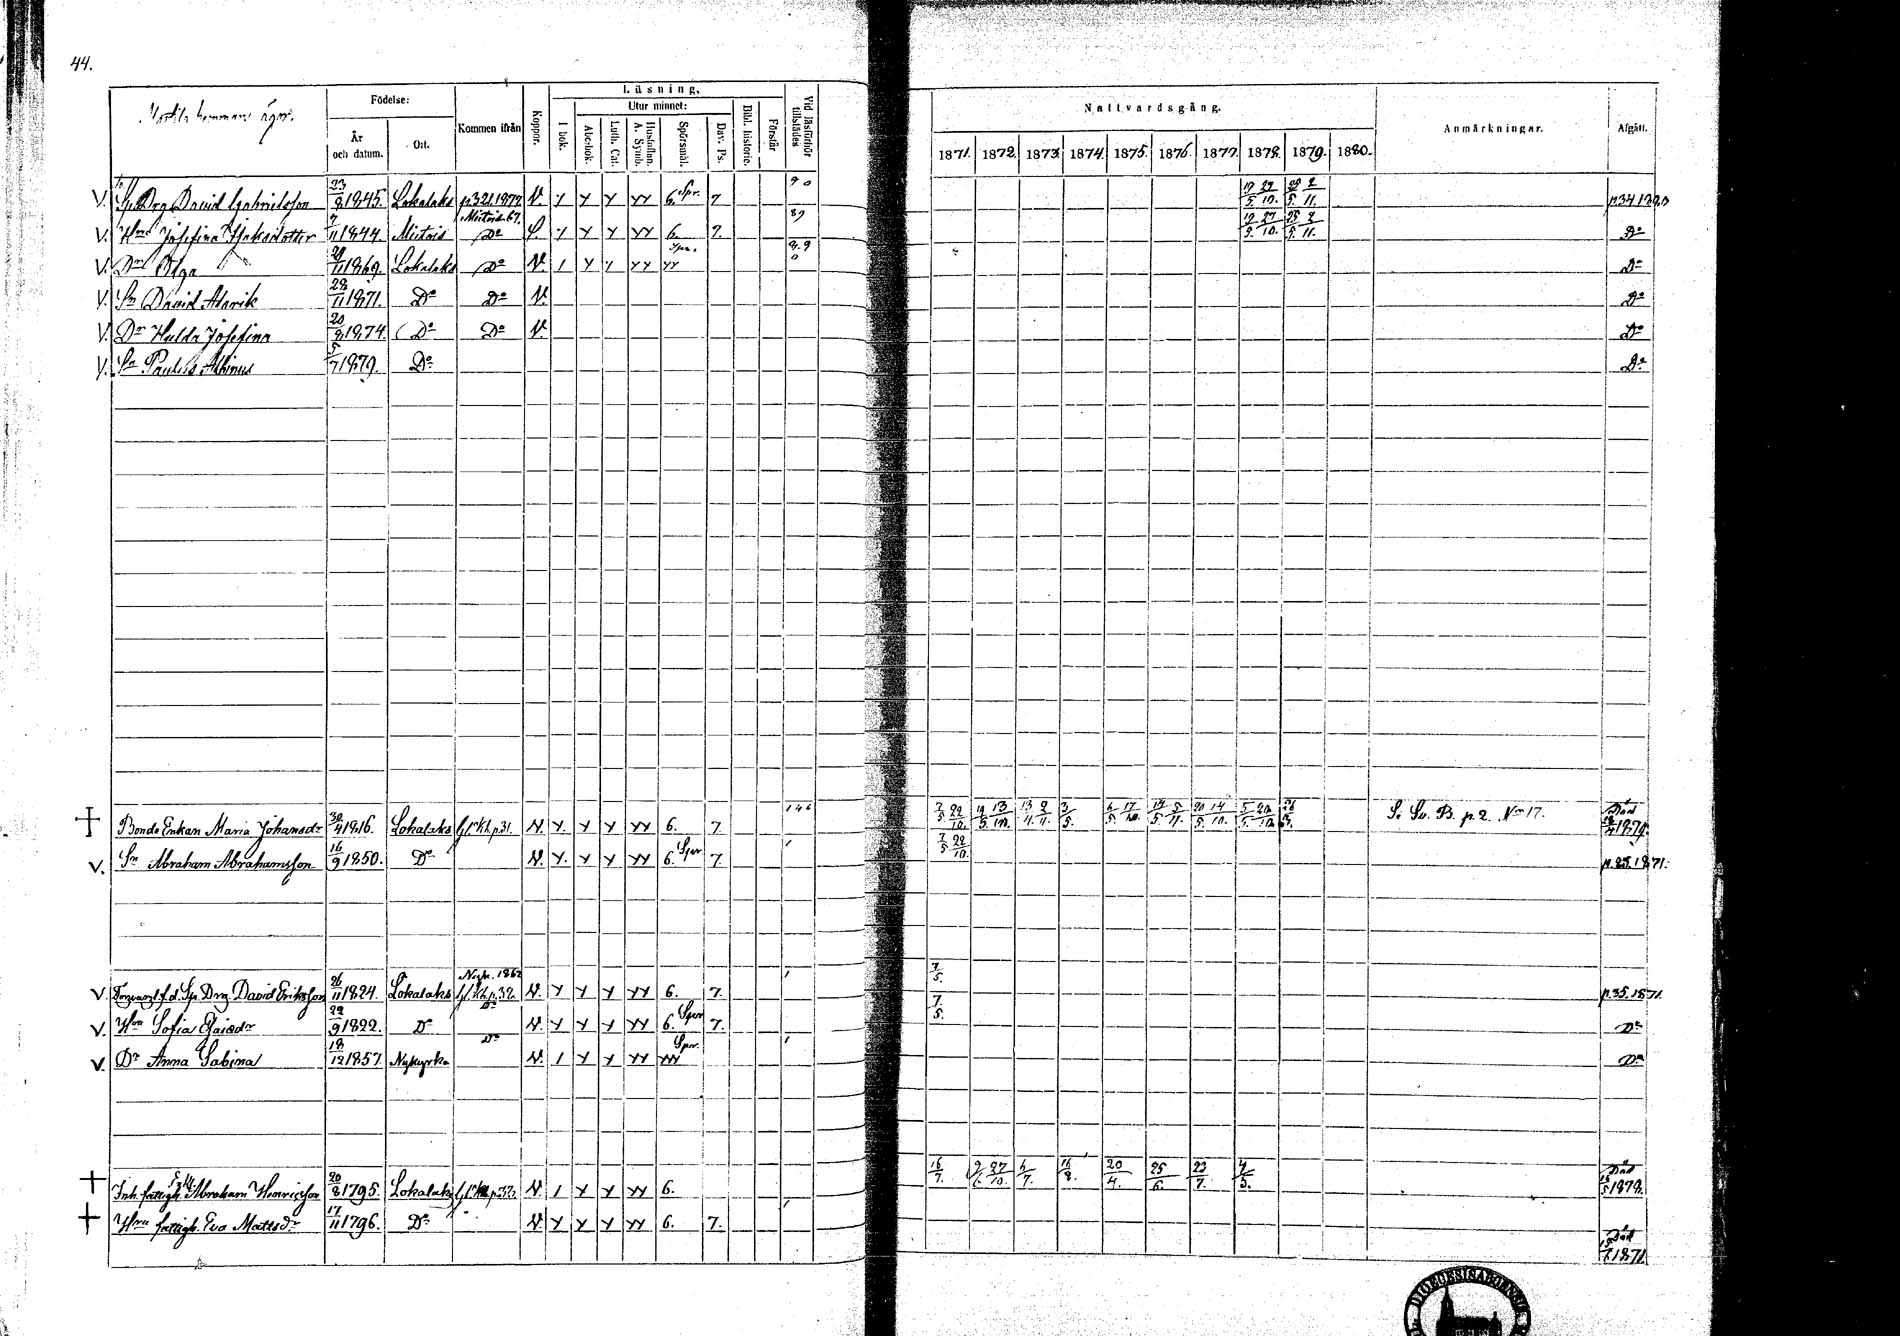 44.
Födelse: Läsning. Nattvardsgång.
hemmans ägor.
År och datum. Ort. Kommen ifrån Koppor. I bok. Utur minnet: Abc-bok. Luth. Cat. Hustaflan. A. Symb. Spörsmål. Dav. Ps. Bibl. historie. Förstår Vid läsförhör tillstädes 1871. 1872. 1873. 1874. 1875. 1876. 1877. 1878. 1879. 1880. Anmärkningar. Afgått.
V. Sp. Drg David Gabrielsson 23/8 1845. Lokalaks p.321.1877 V. Y Y Y YY 6. Spr. 7 9 0 19/5 27/10. 25/5 2/11. p.34 1880
V. Hru Josefina Isaksdotter 7/11 1844. Mietois Mietois 67. Do S. Y Y Y YY 6. 7. 89 19/5 27/10. 25/5 2/11. Do
V. Dr Olga 29/11 1869. Lokalaks Do V. 1 Y Y YY YY Spr. 8.9 0 Do
V. Sn David Alarik 28/11 1871. Do Do V. Do
V. Dr Hulda Josefina 20/8 1874. Do Do V. Do
V. Sn Paulus Albinus 5/7 1879. Do Do
† Bonde Enkan Maria Johansdr 30/4 1816. Lokalaks p.31. V. Y. Y Y YY 6. 7. 146 7/5 22/10. 19/5 13/10. 13/4 2/11. 3/5. 6/5 17/10. 14/5 5/11. 20/5 14/10. 5/5 20/10. S. Sv. B. p.2. Nro 17. Död 1879.
V. Sn Abraham Abrahamsson 16/9 1850. Do V. Y. Y Y YY 6. Spr 7. 7/5 22/10. p.25.1871.
V. f.d. Sp. Drg David Eriksson 26/11 1824. Lokalaks Nyk. 1862 p.32. V. Y Y Y YY 6. 7. 7/5. p.35.1871
V. Hru Sofia Esaiædr 22/9 1822. Do Do V. Y Y Y YY 6. Spr 7. 7/5. Do
V. Dr Anna Sabina 18/12 1857. Nykyrka Do V. 1 Y Y YY YY Spr. Do
† Inh. fattigh. Abraham Henricsson 20/8 1795. Lokalaks p.32. V. 1 Y Y YY 6. 16/7. 27/10. 6/7. 16/8. 20/4. 25/6. 22/7. 4/5. Död 1878.
† Hru fattigh. Eva Matsdr 17/11 1796. Do V. Y Y Y YY 6. 7. Död 1871
DIOECESIS ABOENSIS